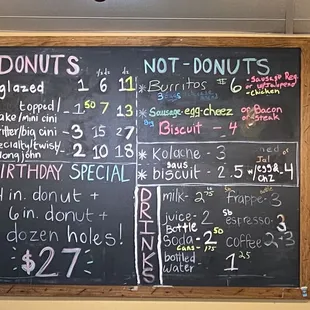 DONUTS
1 ½dz dz
glazed 1 6 11
topped/ 1.50 7 13
cake/mini cini
fritter/big cini - 3 15 27
specialty/twist - 2 10 18
long john
BIRTHDAY SPECIAL
in. donut +
6 in. donut +
dozen holes!
$27
NOT-DONUTS
* Burritos - 6 - Sausage Reg.
or w/ Jalapeno
- chicken
* Sausage-egg-cheez or Bacon
or steak
Big Biscuit - 4
* Kolache - 3
* saus biscuit - 2.5 w/egg & chz - 4
Jal
DRINKS
milk - 2.75 frappe - 3
juice - 2 espresso - 3
Bottle
Soda - 2.50 coffee 2 - 3
cans - 1.75
bottled
water 1.25